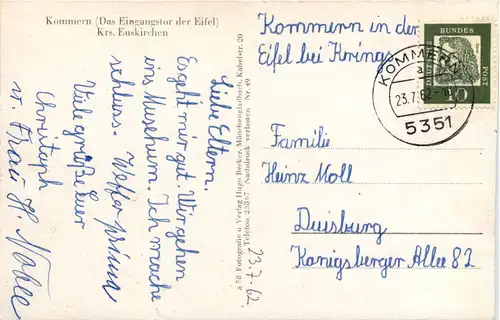 Kommern (Das Eingangstor der Eifel)
Krs. Euskirchen
Kommern in der
Eifel bei Krings
Liebe Eltern.
Es geht mir gut. Wir gehen
ins Museum. Ich mache
schluss. Wetter prima
Viele grüße Euer
Christoph
u. Frau H. Nolle
a 58 Fotografie u. Verlag Hugo Becker, Mönchengladbach, Kabelstr. 20
Telefon 23567 Nachdruck verboten Nr. 49
23.7.62
DEUTSCHE
BUNDES
POST
10
KOMMERN
a
23.7.62
5351
Familie
Heinz Moll
Duisburg
Königsberger Allee 82